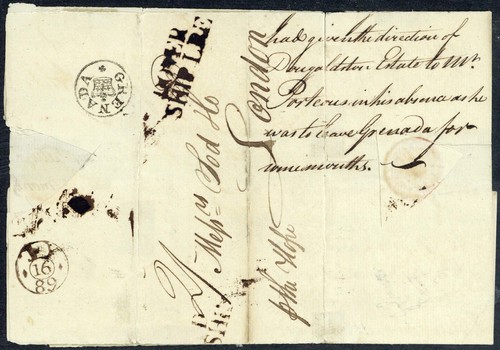 had given the direction of
Dougaldston Estate to Mr.
Porteus in his absence as he
was to leave Grenada for
some months.
GRENADA
DOVER
SHIP LRE
Mess.rs Tod & Co
London
p the Hope
16
89
SHIP